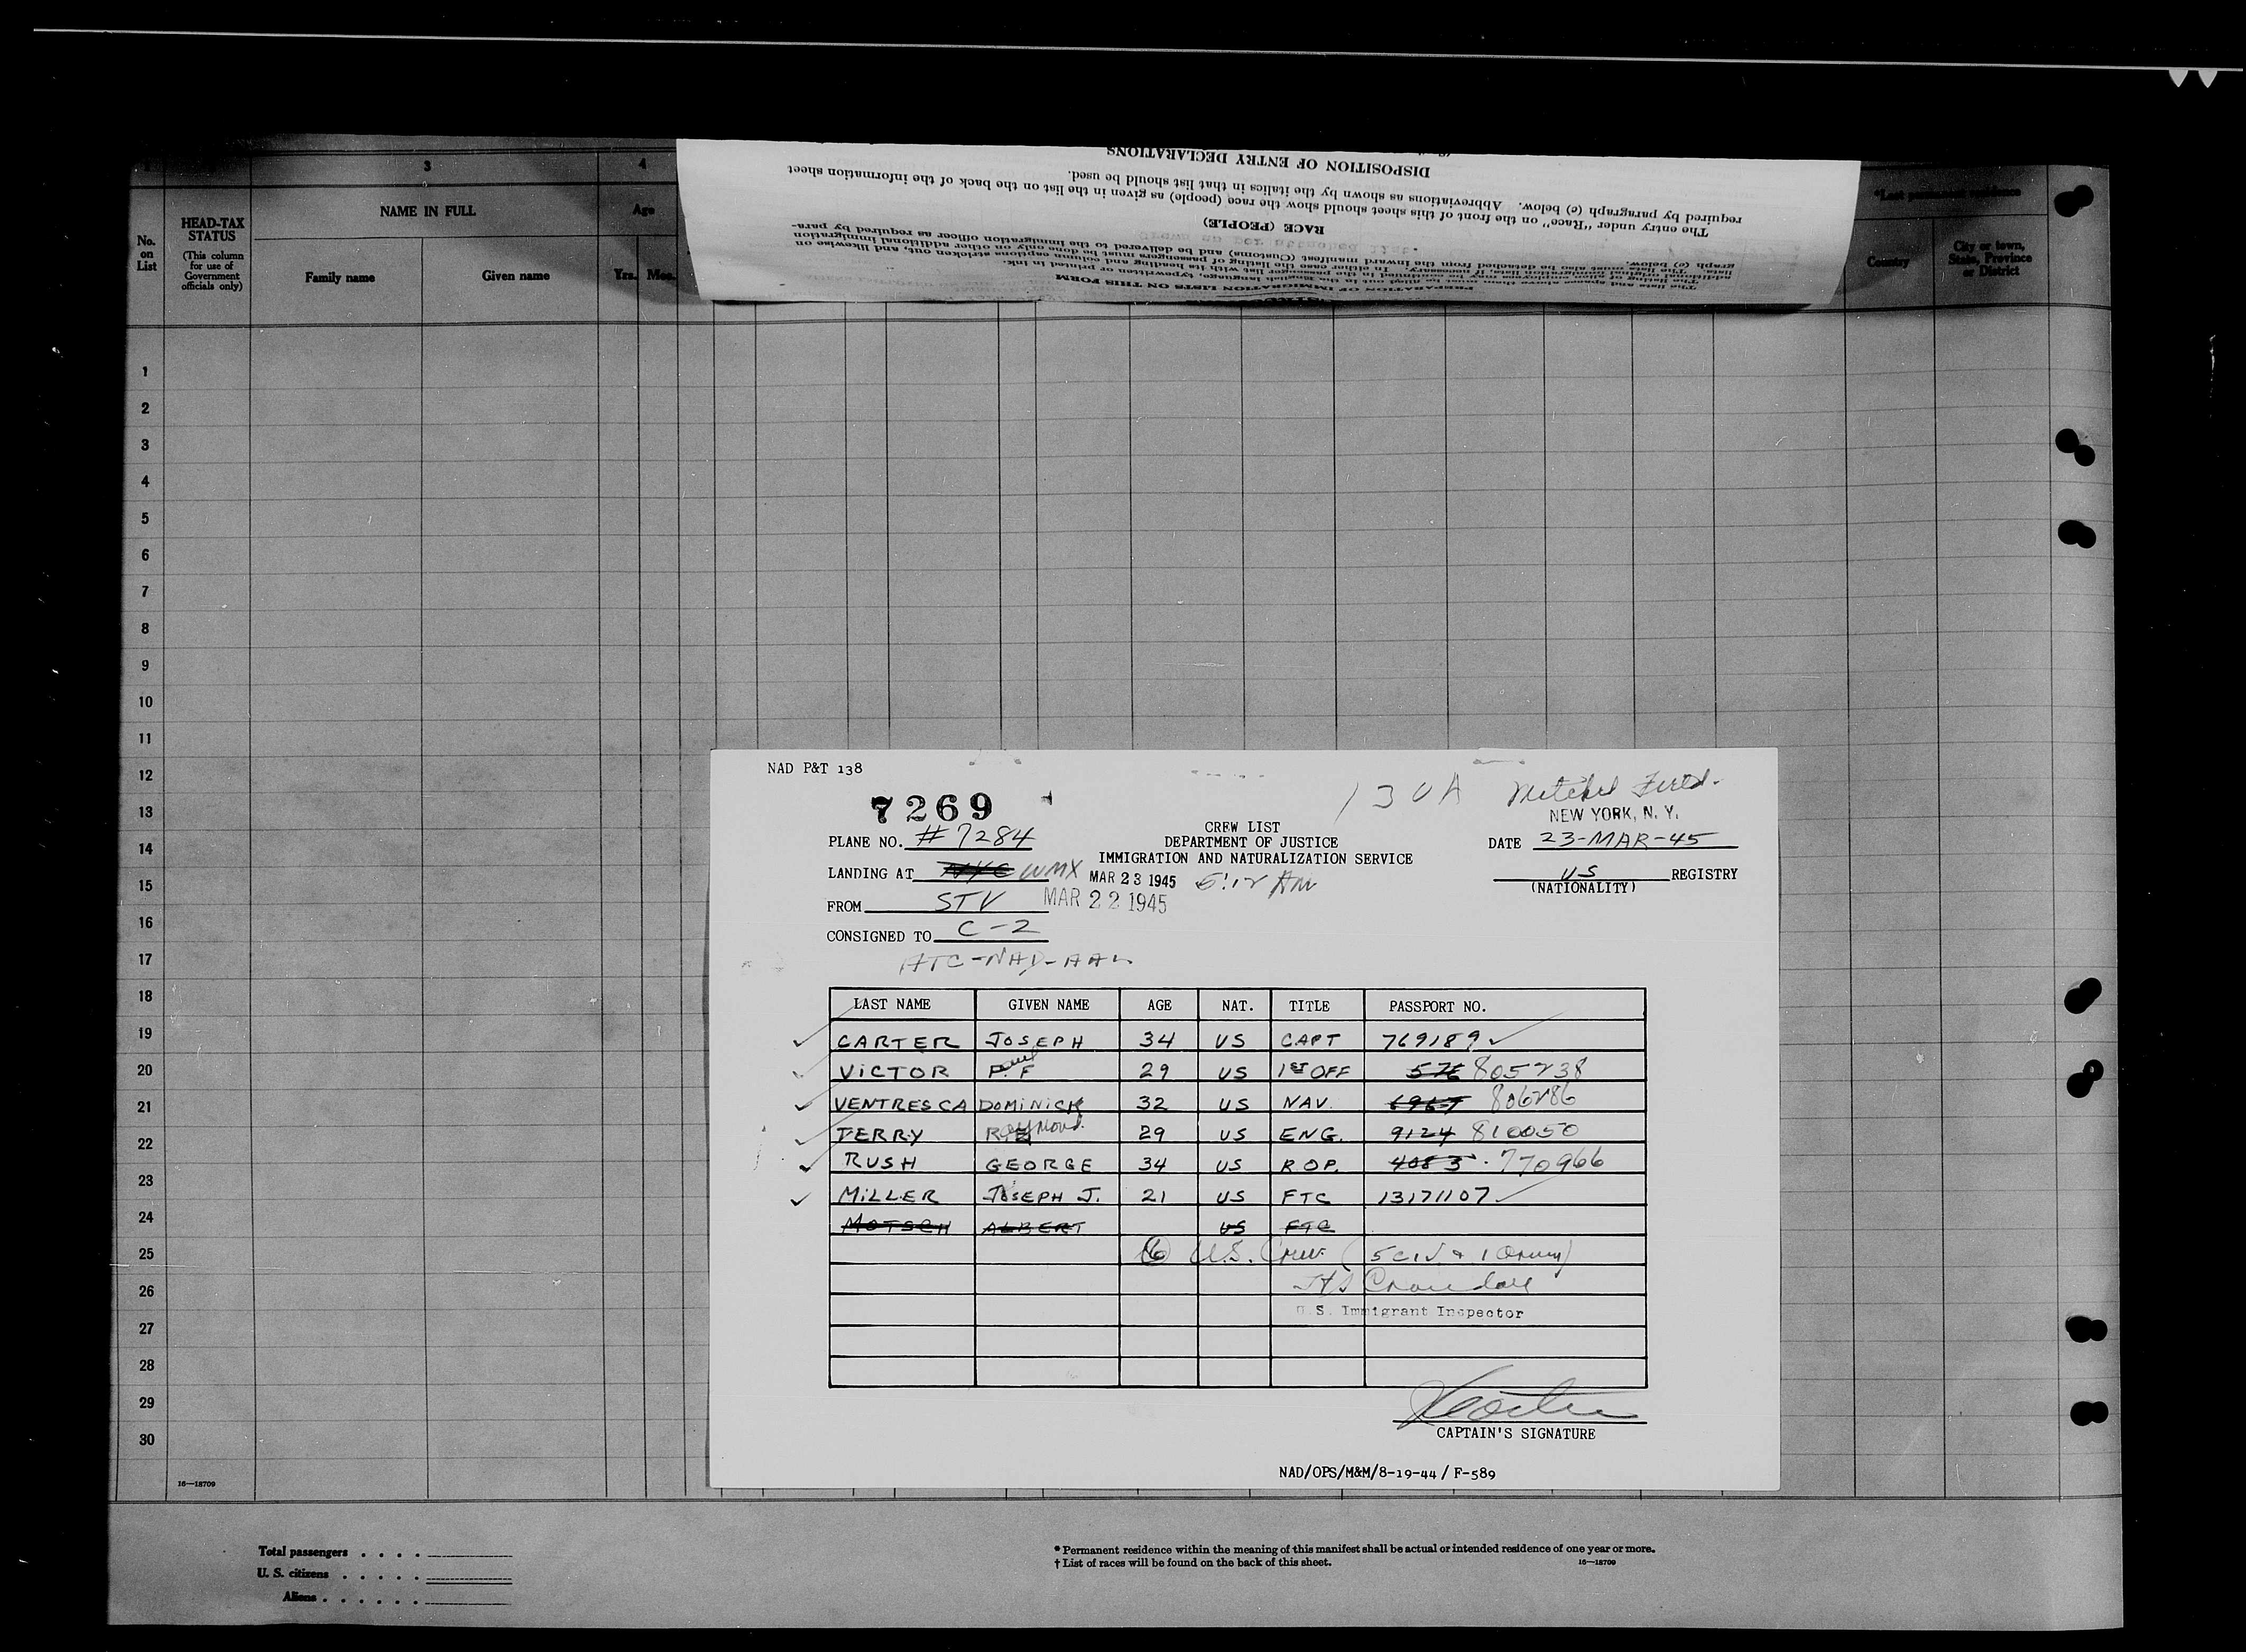 3
4
NAME IN FULL
Age
HEAD-TAX
STATUS
(This column
for use of
Government
officials only)
No.
on
List
Family name
Given name
Yrs.
Mos.
DISPOSITION OF ENTRY DECLARATIONS
required by paragraph (e) below. Abbreviations as shown by the italics in that list should be used.
The entry under "Race" on the front of this sheet should show the race (people) as given in the list on the back of the information sheet
RACE (PEOPLE)
PREPARATION OF IMMIGRATION LISTS ON THIS FORM
*Last permanent residence
Country
City or town,
State, Province
or District
1
2
3
4
5
6
7
8
9
10
11
12
13
14
15
16
17
18
19
20
21
22
23
24
25
26
27
28
29
30
16—18709
NAD P&T 138
7269
130A
Mitchel Field
NEW YORK, N. Y.
PLANE NO. #7284
CREW LIST
DEPARTMENT OF JUSTICE
IMMIGRATION AND NATURALIZATION SERVICE
DATE 23-MAR-45
LANDING AT NYC WMX MAR 23 1945 5:12 AM
US REGISTRY
(NATIONALITY)
FROM STV MAR 22 1945
CONSIGNED TO C-2
ATC-NAD-AAL
LAST NAME GIVEN NAME AGE NAT. TITLE PASSPORT NO.
CARTER JOSEPH 34 US CAPT 769189
VICTOR P. F Paul 29 US 1ST OFF 576 805238
VENTRESCA DOMINICK 32 US NAV. 6967 806286
TERRY Raymond 29 US ENG. 9124 810050
RUSH GEORGE 34 US R.OP. 4083 770966
MILLER JOSEPH J. 21 US FTC 13171107
MOTSCH ALBERT US FTC
6 U.S. Crew (5 civ & 1 Army)
Crandall
U.S. Immigrant Inspector
CAPTAIN'S SIGNATURE
NAD/OPS/M&M/8-19-44/ F-589
Total passengers . . . .
U. S. citizens . . . . .
Aliens . . . . . .
* Permanent residence within the meaning of this manifest shall be actual or intended residence of one year or more.
† List of races will be found on the back of this sheet.
16—18709